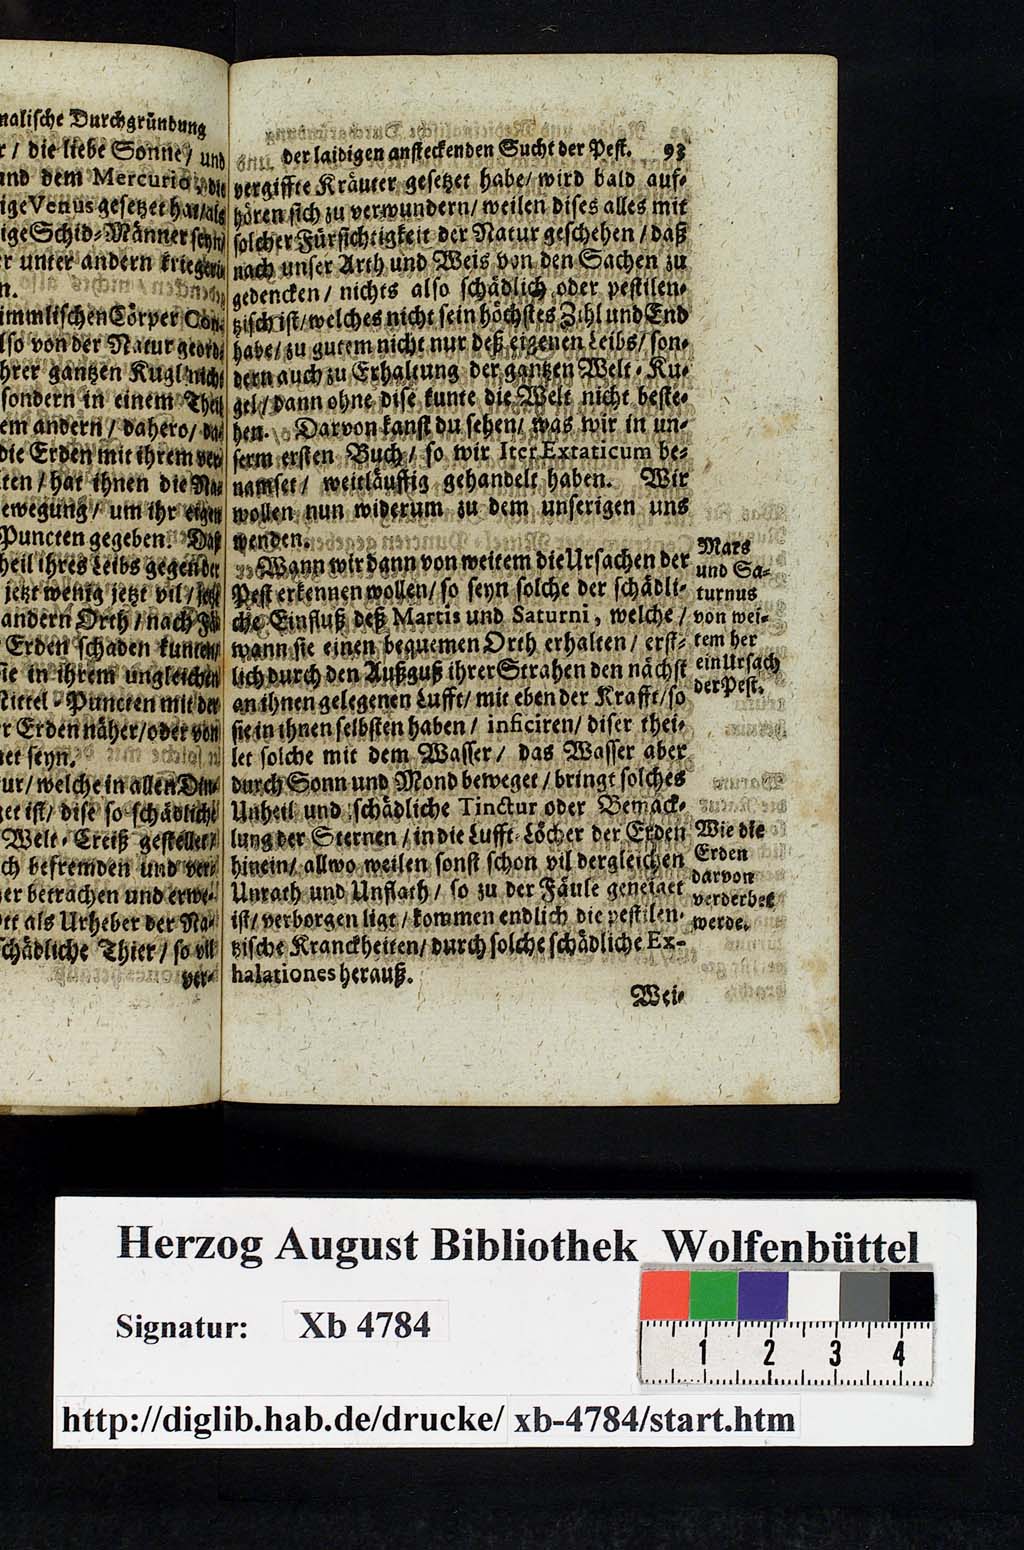 nalische Durchgründung
r / die liebe Sonne / und
und dem Mercurio, die
ige Venus gesetzet hat / als
ige Schid-Männer seyn /
r unter andern kriegeri
n.
immlischen Cörper Con-
lso von der Natur geord-
hrer gantzen Kugl nicht
sondern in einem Theil
em andern / dahero / da-
die Erden mit ihrem ver-
ten / hat ihnen die Na-
ewegung / um ihr eigen
Puncten gegeben. Daß
heil ihres Leibs gegen der
jetzt wenig jetzt vil / jetzt
andern Orth / nach
Erden schaden kunten /
sie in ihrem ungleichen
Mittel-Puncten mit der
r Erden näher / oder von
net seyn.
ur / welche in allen Din-
get ist / dise so schädliche
Welt-Creiß gestellet /
ch befremden und ver-
er betrachen und erwe-
Ott als Urheber der Na-
schädliche Thier / so vil
ver-
der laidigen ansteckenden Sucht der Pest. 93
vergiffte Kräuter gesetzet habe / wird bald auf-
hören sich zu verwundern / weilen dises alles mit
solcher Fürsichtigkeit der Natur geschehen / daß
nach unser Arth und Weis von den Sachen zu
gedencken / nichts also schädlich oder pestilen-
tzisch ist / welches nicht sein höchstes Zihl und End
habe / zu gutem nicht nur deß eigenen Leibs / son-
dern auch zu Erhaltung der gantzen Welt-Ku-
gel / dann ohne dise kunte die Welt nicht beste-
hen. Darvon kanst du sehen / was wir in un-
serm ersten Buch / so wir Iter Extaticum be-
namset / weitläuffig gehandelt haben. Wir
wollen nun widerum zu dem unserigen uns
wenden.
Wann wir dann von weitem die Ursachen der
Pest erkennen wollen / so seyn solche der schädli-
che Einfluß deß Martis und Saturni, welche /
wann sie einen bequemen Orth erhalten / erst-
lich durch den Außguß ihrer Strahen den nächst
an ihnen gelegenen Lufft / mit eben der Krafft / so
sie in ihnen selbsten haben / inficiren / diser thei-
let solche mit dem Wasser / das Wasser aber
durch Sonn und Mond beweget / bringt solches
Unheil und schädliche Tinctur oder Bemäck-
lung der Sternen / in die Lufft-Löcher der Erden
hinein / allwo weilen sonst schon vil dergleichen
Unrath und Unflath / so zu der Fäule geneiget
ist / verborgen ligt / kommen endlich die pestilen-
tzische Kranckheiten / durch solche schädliche Ex-
halationes herauß.
Wei-
Mars
und Sa-
turnus
von wei-
tem her
ein Ursach
der Pest.
Wie die
Erden
darvon
verderbet
werde.
Herzog August Bibliothek Wolfenbüttel
Signatur: Xb 4784
1 2 3 4
http://diglib.hab.de/drucke/ xb-4784/start.htm